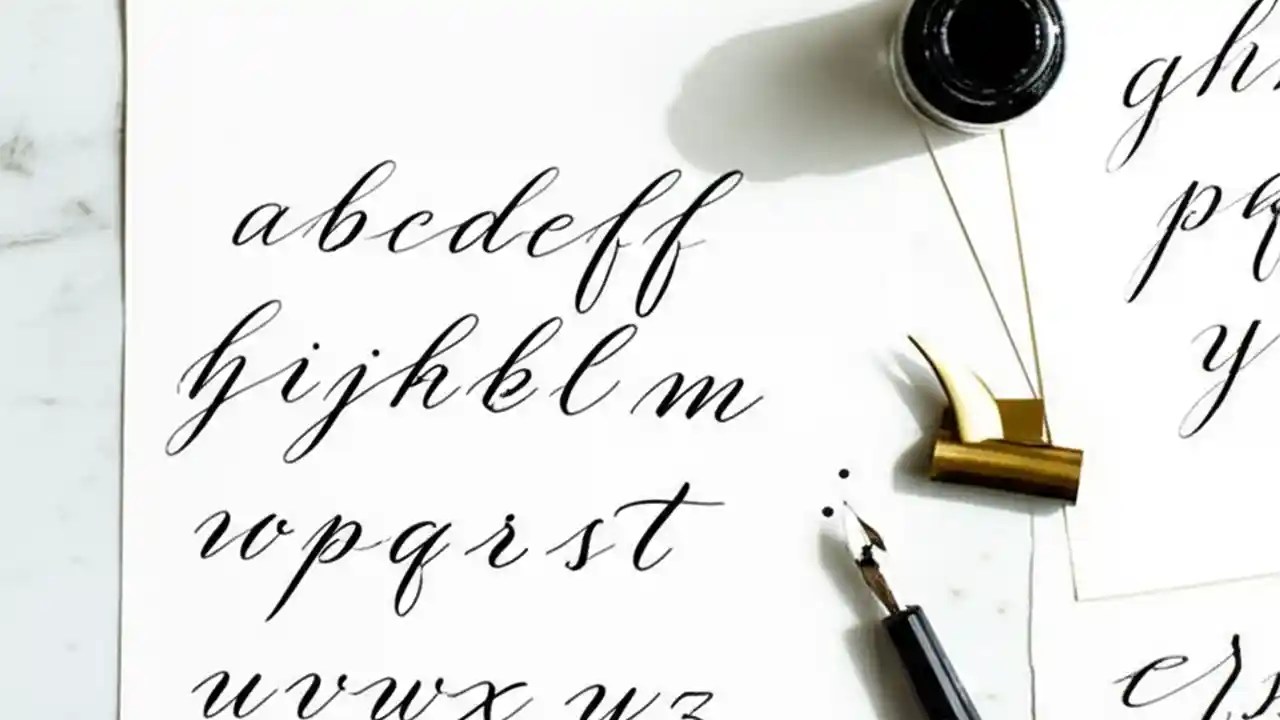 abcdeff
hijhklm
nopqrst
uvwxyz
gh
pq
y